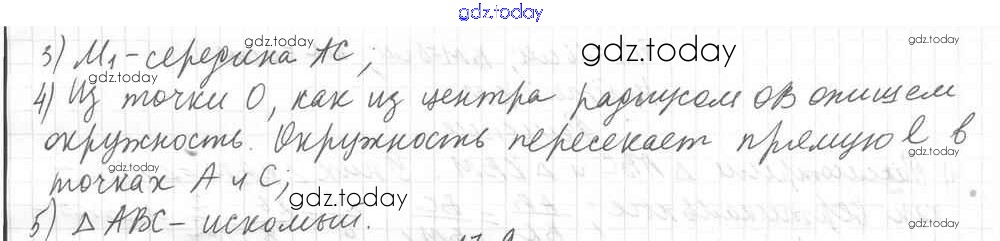 gdz.today
3) M₁ - середина AC;
gdz.today
gdz.today
gdz.today
4) Из точки O, как из центра радиусом OB опишем
окружность. Окружность пересекает прямую l в
gdz.today
точках A и C;
gdz.today
5) △ABC - искомый.